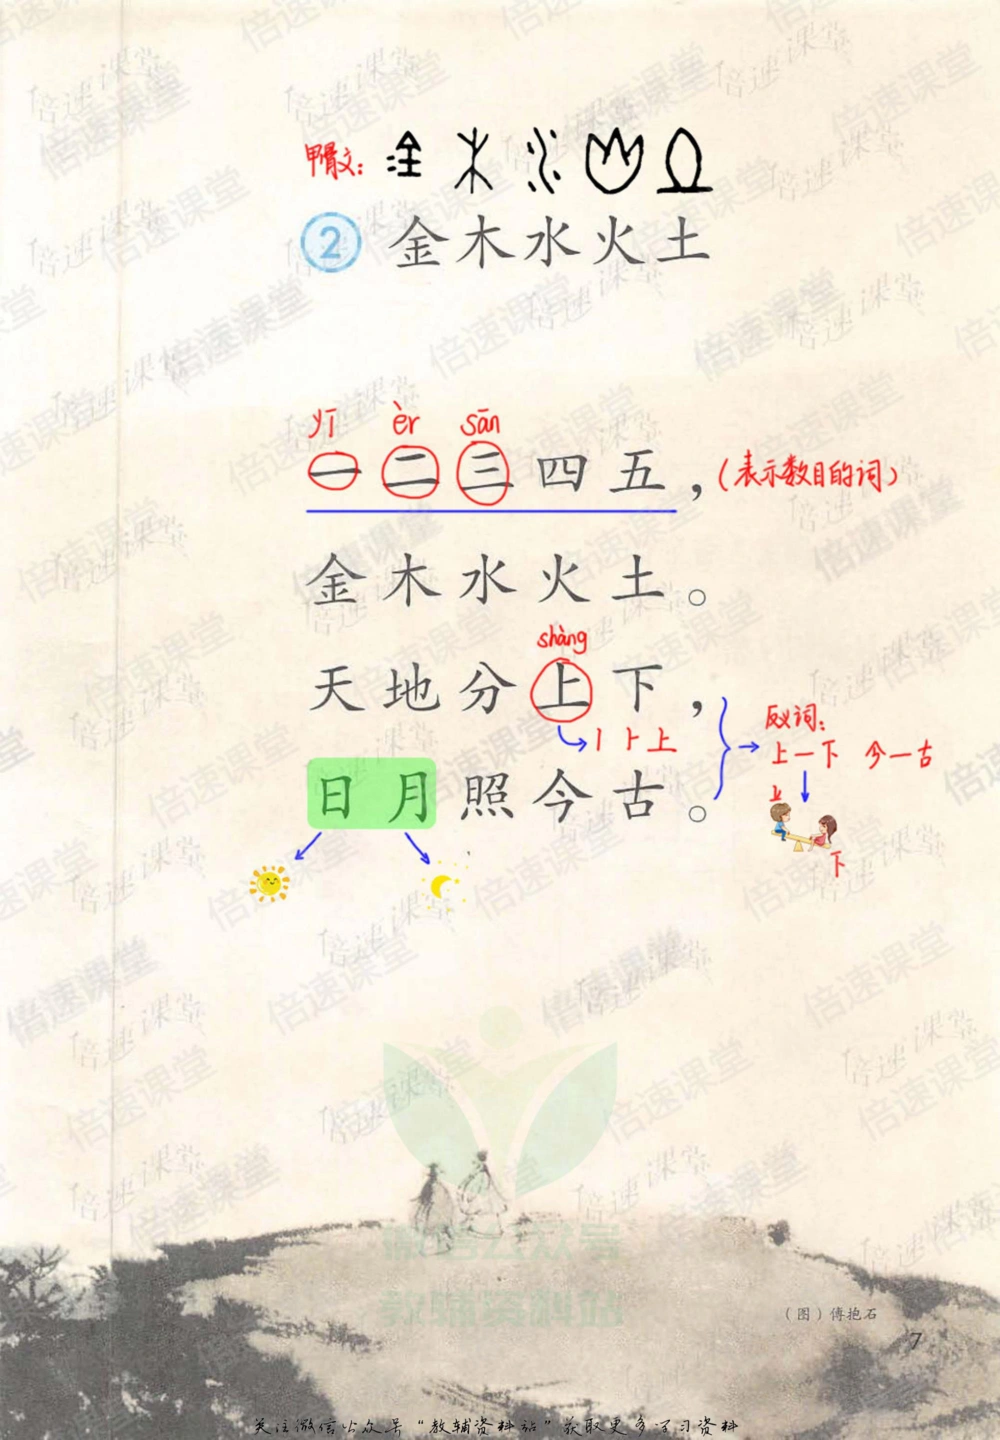 甲骨文:
2 金木水火土
yī èr sān
一二三四五，(表示数目的词)
金木水火土。
shàng
天地分上下，
丨⺊上
反义词:
上—下 今—古
日月照今古。
上
下
微信公众号
教辅资料站
(图)傅抱石
7
关注微信公众号"教辅资料站"获取更多学习资料
倍速课堂